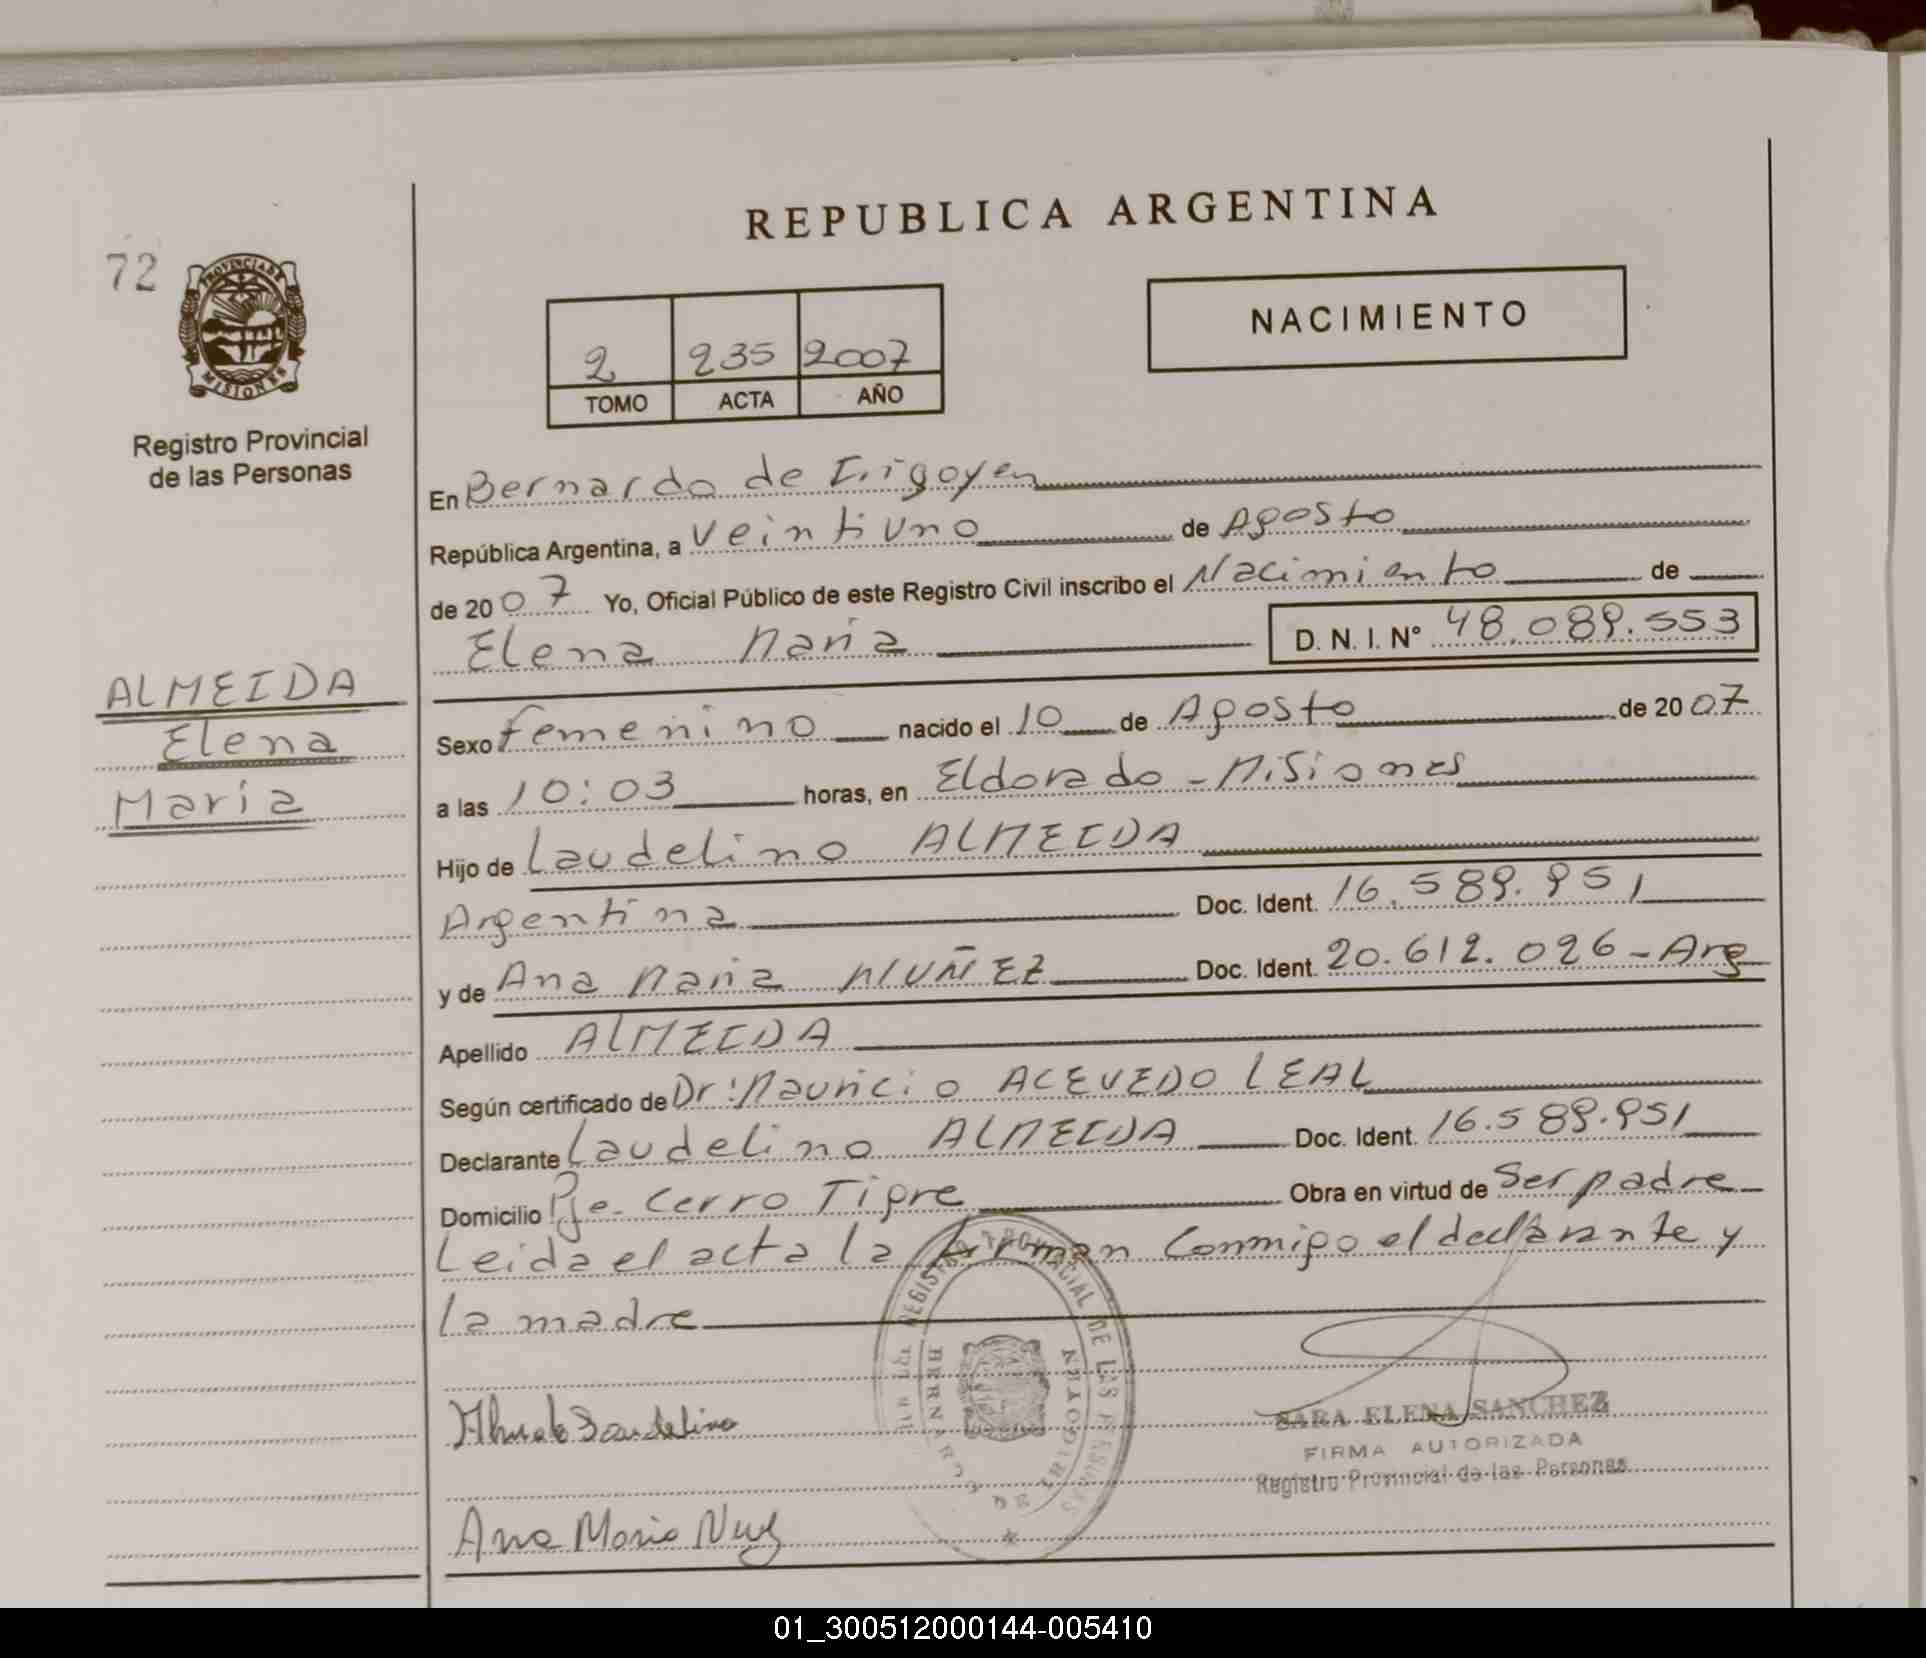 REPUBLICA ARGENTINA
72
PROVINCIA DE
MISIONES
Registro Provincial
de las Personas
NACIMIENTO
2 235 2007
TOMO ACTA AÑO
En Bernardo de Irigoyen
República Argentina, a Veintiuno de Agosto
de 2007 Yo, Oficial Público de este Registro Civil inscribo el Nacimiento de
Elena Maria D. N. I. N° 48.089.553
ALMEIDA
Elena
Maria
Sexo Femenino nacido el 10 de Agosto de 2007
a las 10:03 horas, en Eldorado - Misiones
Hijo de Laudelino ALMEIDA
Argentina Doc. Ident. 16.589.951
y de Ana Maria NUÑEZ Doc. Ident. 20.612.026 - Arg
Apellido ALMEIDA
Según certificado de Dr: Mauricio ACEVEDO LEAL
Declarante Laudelino ALMEIDA Doc. Ident. 16.589.951
Domicilio Pje. Cerro Tigre Obra en virtud de Ser padre
Leida el acta la firman Conmigo el declarante y
la madre
REGISTRO PROVINCIAL DE LAS PERSONAS
BERNARDO DE IRIGOYEN
SARA ELENA SANCHEZ
FIRMA AUTORIZADA
Registro Provincial de las Personas
Ana Maria
01_300512000144-005410